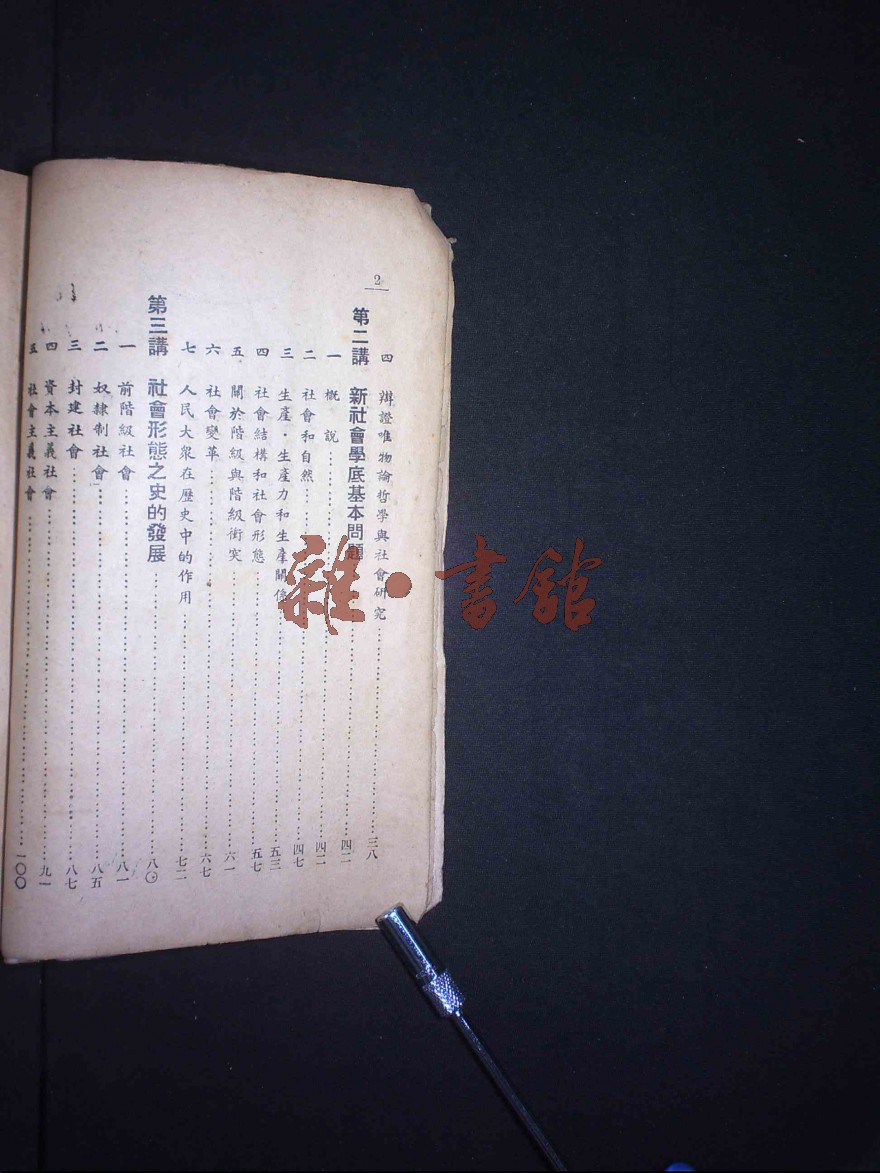 2
四 辯證唯物論哲學與社會研究……三八
第二講 新社會學底基本問題……四二
一 概說……四二
二 社會和自然……四七
三 生產・生產力和生產關係……五三
四 社會結構和社會形態……五七
五 關於階級與階級衝突……六一
六 社會變革……六七
七 人民大衆在歷史中的作用……七二
第三講 社會形態之史的發展……八〇
一 前階級社會……八一
二 奴隸制社會……八五
三 封建社會……八七
四 資本主義社會……九一
五 社會主義社會……一〇〇
雜・書館